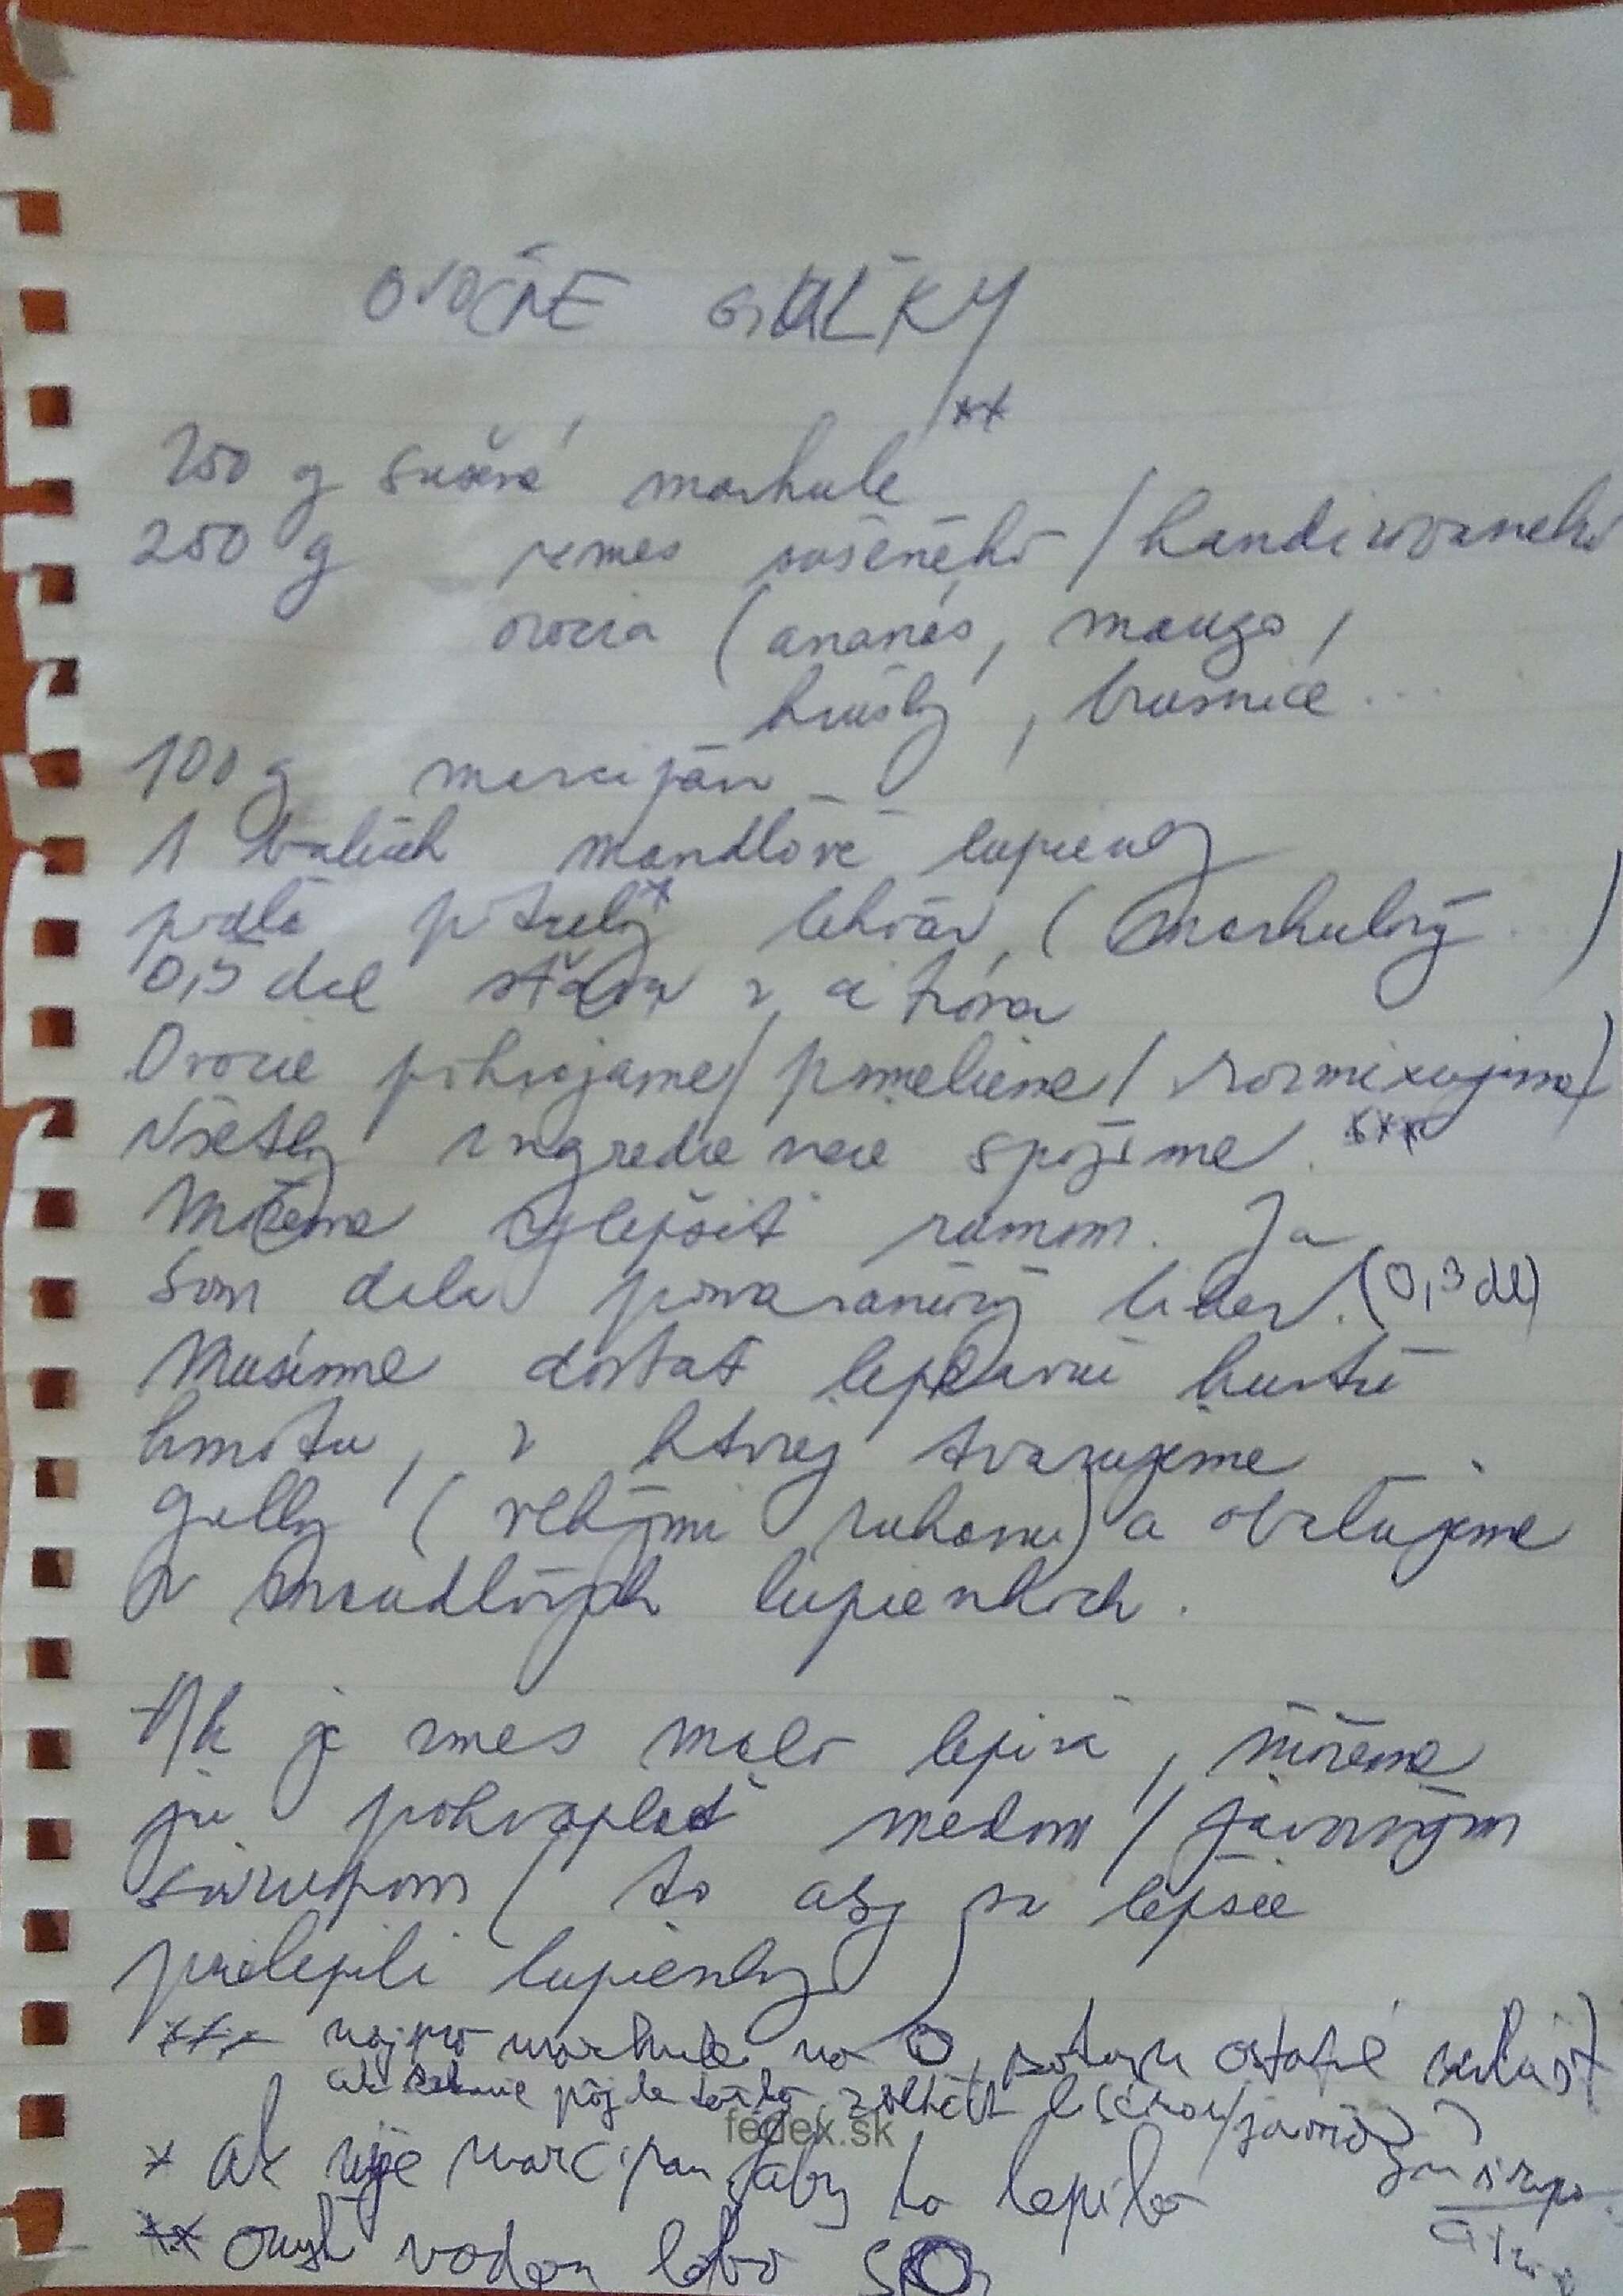 OVOCNÉ GUĽKY
250 g sušené marhule **
250 g zmes sušeného / kandizovaneho
ovocia (ananás, mango,
hrušky, brusnice ...
100 g marcipán
1 balíček mandlové lupienky
podľa potreby * lekvár (marhuľový ...)
0,5 dcl šťava z citróna
Ovocie pokrájame / pomelieme / rozmixujeme /
Všetky ingrediencie spojíme. ***
Môžeme vylepšiť rumom. Ja
som dala pomarančový likér. (0,3 dl)
Musíme dostať lepkavú hustú
hmotu, z ktorej tvarujeme
guľky (vlhkými rukami) a obaľujeme
v mandlových lupienkoch.
Ak je zmes málo lepivá, môžeme
ju pokvapkať medom / javorovým
sirupom / to aby sa lepšie
prilepili lupienky
*** najprv marhule na potom ostatné
ak pôjde ťažko, zvlhčiť /
fedek.sk
* ak nie je marcipan, aby to lepilo
** vodou lebo